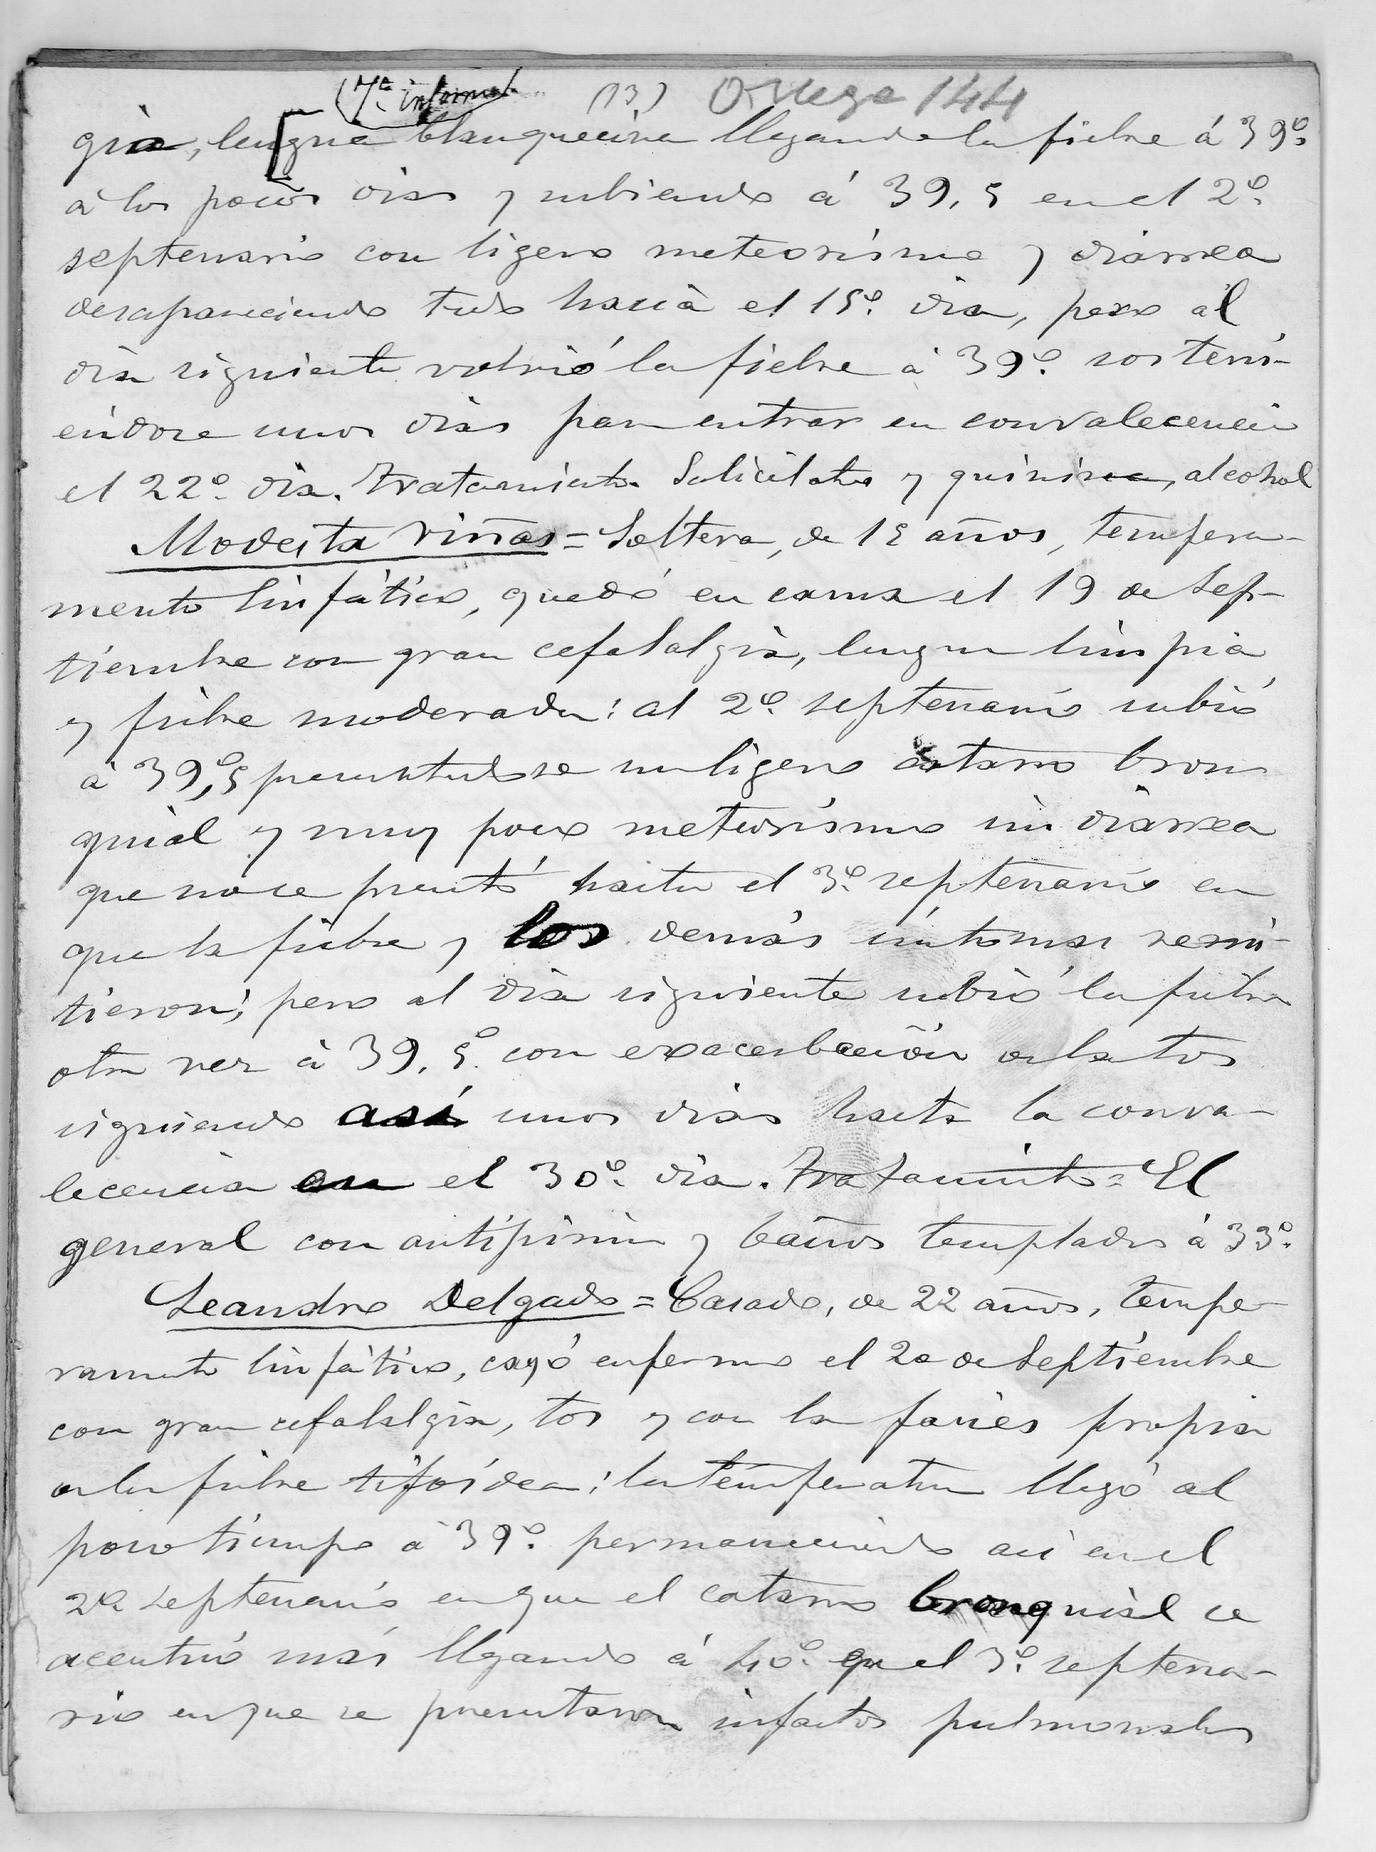 (13) Ortega 144
gia, lengua blanquecina llegando la fiebre á 39º
á los pocos dias y subiendo á 39,5 en el 2º
septenario con ligero meteorismo y diarrea
desapareciendo todo hacia el 15º dia, pero al
dia siguiente volvió la fiebre á 39º sosteni-
éndose unos dias para entrar en convalecencia
el 22º dia. Tratamiento Salicilatos y quinina, alcohol
Modesta Viñas = Soltera, de 15 años, tempera-
mento linfático, quedó en cama el 19 de Sep-
tiembre con gran cefalalgia, lengua limpia
y fiebre moderada: al 2º septenario subió
á 39º,5 presentandose un ligero catarro bron
quial y muy poco meteorismo sin diarrea
que no se presentó hasta el 3º septenario en
que la fiebre y los demás síntomas remi-
tieron; pero al dia siguiente subió la fiebre
otra vez á 39,5º con exacerbación de la tos
siguiendo así unos dias hasta la conva-
lecencia en el 30º dia. Tratamiento = El
general con antipirina y baños templados á 33º
Leandro Delgado = Casado, de 22 años, tempe-
ramento linfático, cayó enfermo el 20 de Septiembre
con gran cefalalgia, tos y con la facies propia
de la fiebre tifoídea; la temperatura llegó al
poco tiempo á 39º permaneciendo asi en el
2º septenario en que el catarro bronquial se
acentuó más llegando á 40º en el 3º septena-
rio en que se presentaron infartos pulmonales